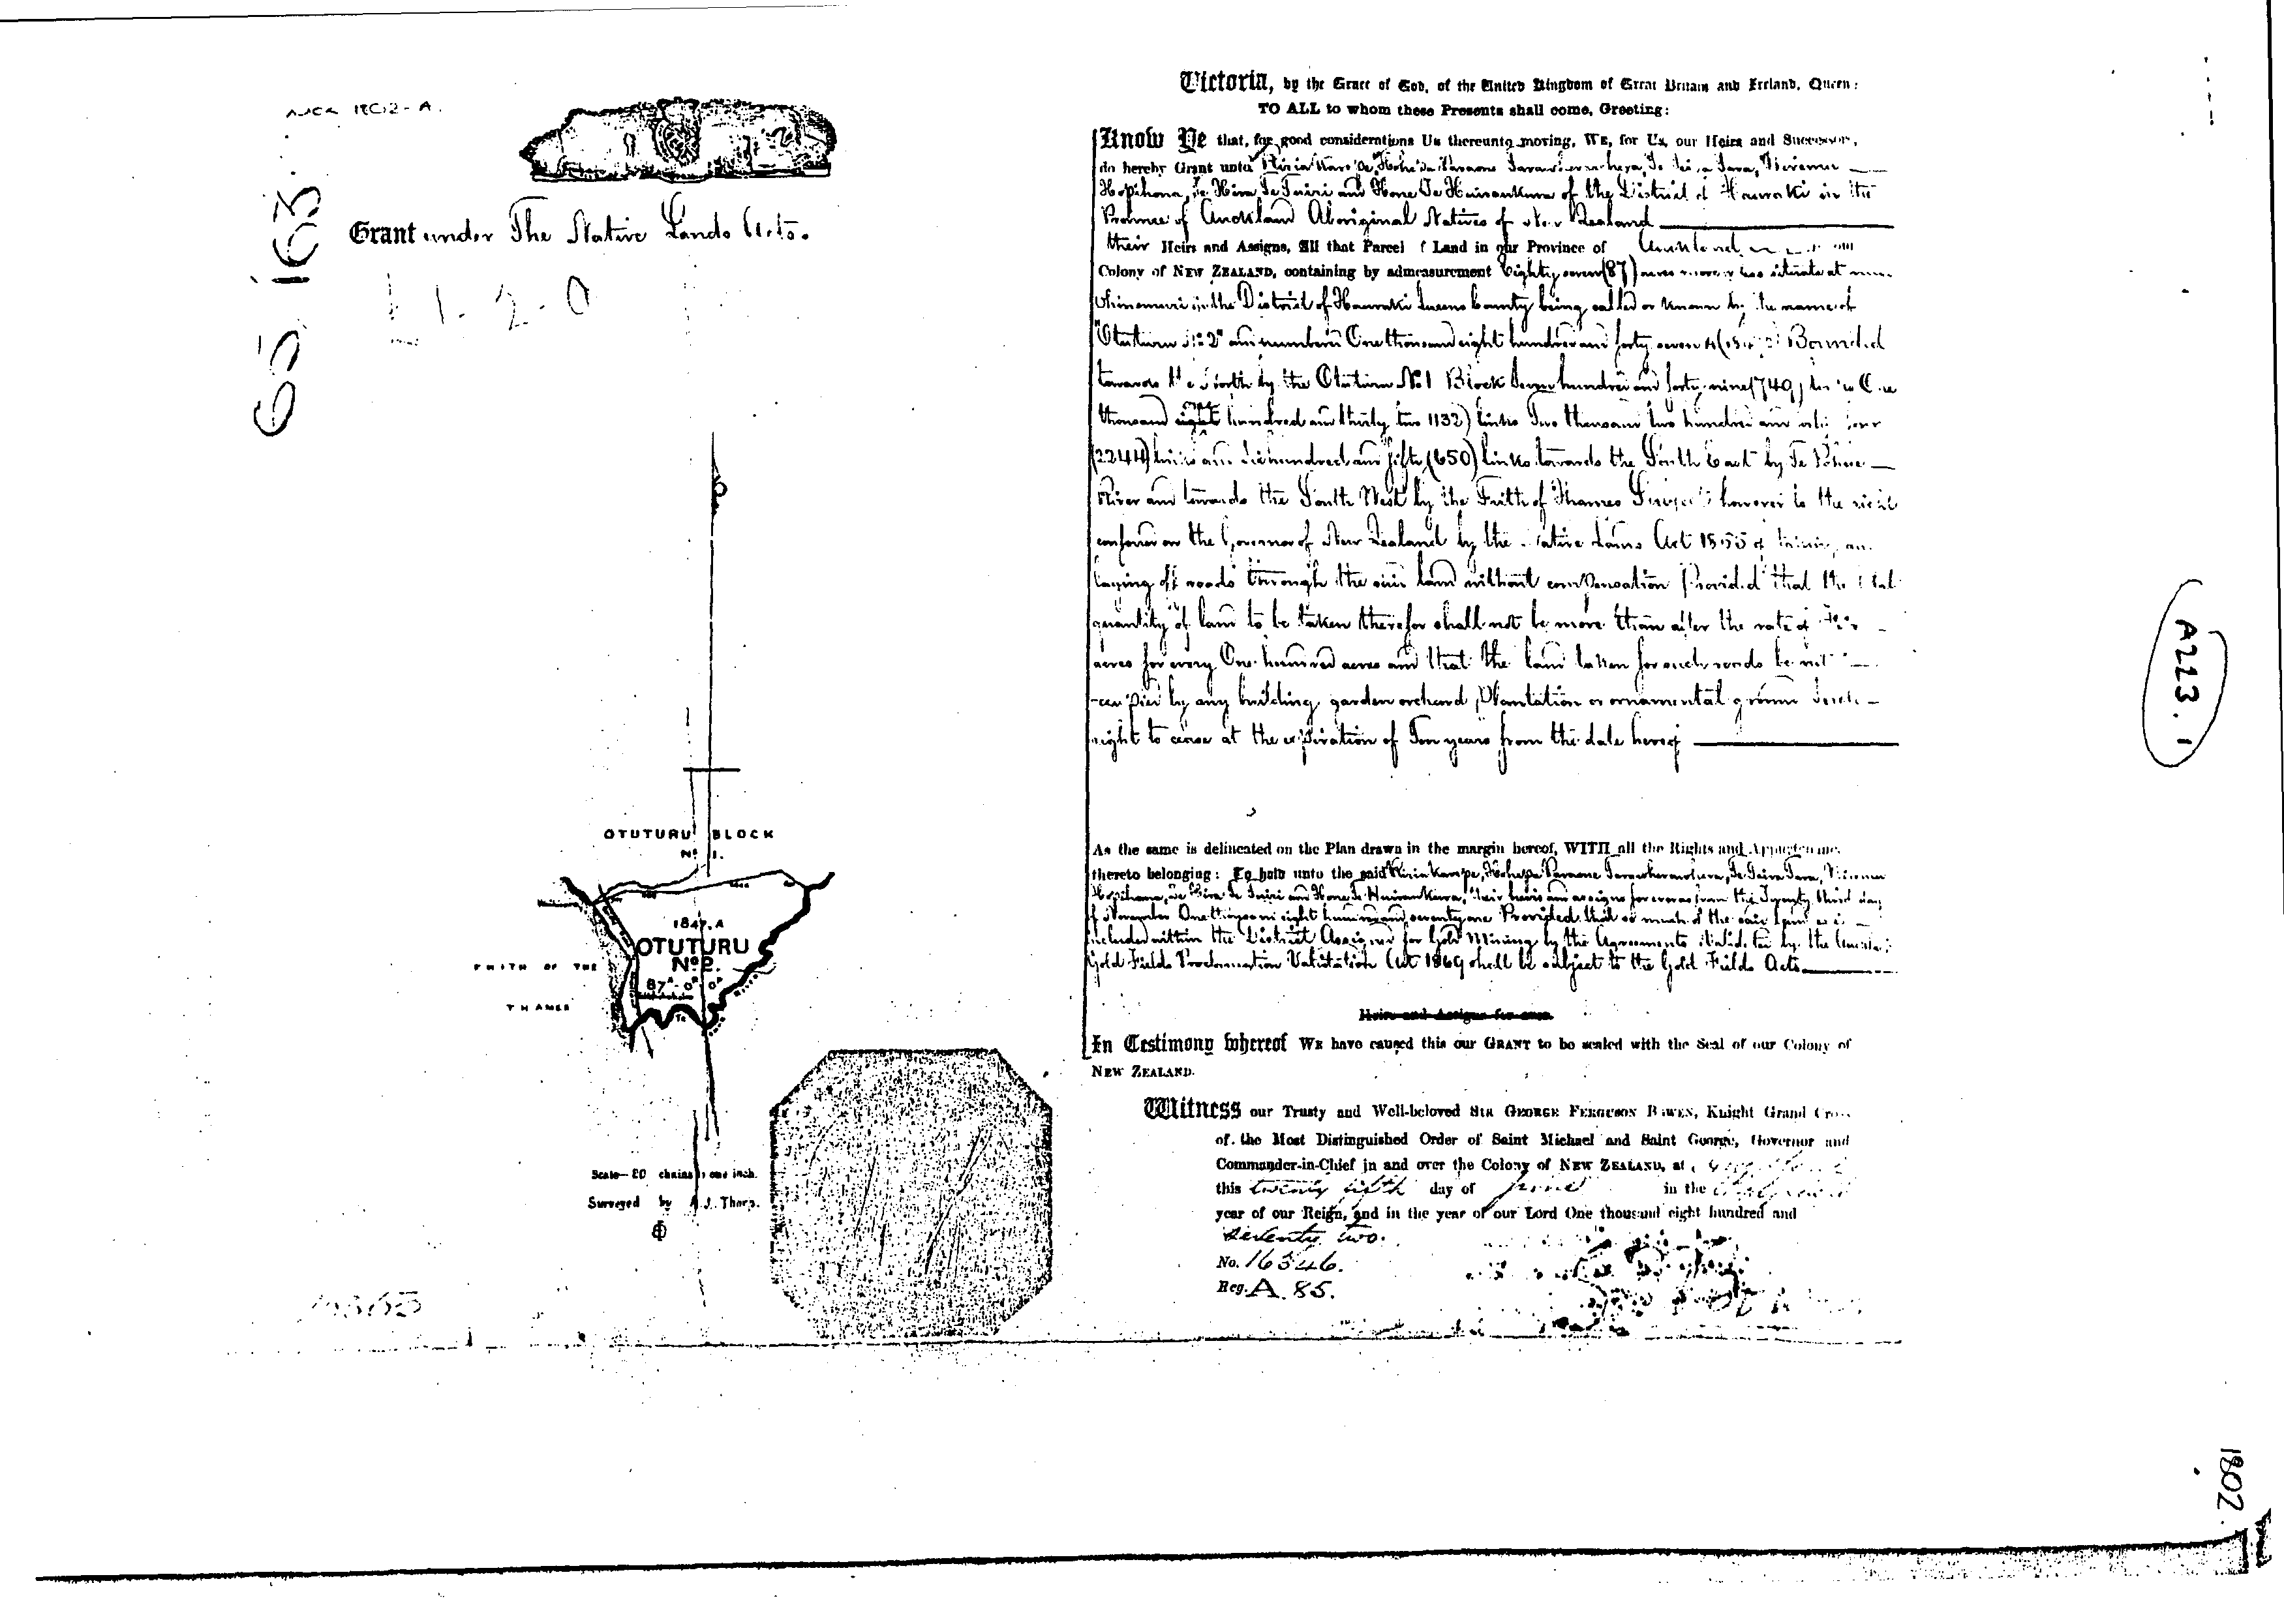 65 163
Grant under The Native Lands Acts.
1-2-0
OTUTURU BLOCK
No 1.
1847.A
OTUTURU
No 2.
87A. 0R. 0P
FRITH OF THE
THAMES
Scale—20 chains one inch.
Surveyed by A.J. Thorp.
Victoria, by the Grace of God, of the United Kingdom of Great Britain and Ireland, Queen:
TO ALL to whom these Presents shall come, Greeting:
Know Ye that, for good considerations Us thereunto moving, WE, for Us, our Heirs and Successors,
do hereby Grant unto
Hopihona, Te Hira Te Tuiri and Hone Te Huiraukura of the District of Hauraki in the
Province of Auckland Aboriginal Natives of New Zealand
their Heirs and Assigns, All that Parcel of Land in our Province of Auckland in our
Colony of NEW ZEALAND, containing by admeasurement Eighty seven (87) acres more or less situate at
Ohinemuri in the District of Hauraki Queens County being called or known by the name of
"Otuturu No 2" and numbered One thousand eight hundred and forty seven A Bounded
towards the North by the Otuturu No 1 Block Seven hundred and forty nine (749) links One
thousand eight one hundred and thirty two 1132) links Two thousand two hundred and forty four
(2244) links and Six hundred and fifty (650) links towards the South East by Te
River and towards the South West by the Frith of Thames Subject however to the right
conferred on the Governor of New Zealand by the Native Lands Act 1865 of taking and
laying off roads through the said land without compensation Provided that the total
quantity of land to be taken therefor shall not be more than after the rate of Five
acres for every One hundred acres and that the land taken for such roads be not
-cupied by any building garden orchard Plantation or ornamental ground Such
right to cease at the expiration of Ten years from the date hereof
As the same is delineated on the Plan drawn in the margin hereof, WITH all the Rights and Appurtenances
thereto belonging: To hold unto the said
Hopihona, Te Hira Te Tuiri and Hone Te Huiraukura, their heirs and assigns for ever as from the Twenty third day
of November One thousand eight hundred and seventy one Provided that so much of the said land as is
included within the District Assigned for Gold Mining by the Agreements Validated by the Auckland
Gold Fields Proclamation Validation Act 1869 shall be subject to the Gold Fields Acts
Heirs and Assigns for ever.
In Testimony whereof WE have caused this our GRANT to be sealed with the Seal of our Colony of
NEW ZEALAND.
Witness our Trusty and Well-beloved SIR GEORGE FERGUSON BOWEN, Knight Grand Cross
of the Most Distinguished Order of Saint Michael and Saint George, Governor and
Commander-in-Chief in and over the Colony of NEW ZEALAND, at
this twenty fifth day of June in the
year of our Reign, and in the year of our Lord One thousand eight hundred and
seventy two.
No. 16346.
Reg. A. 85.
A223.1
1802.